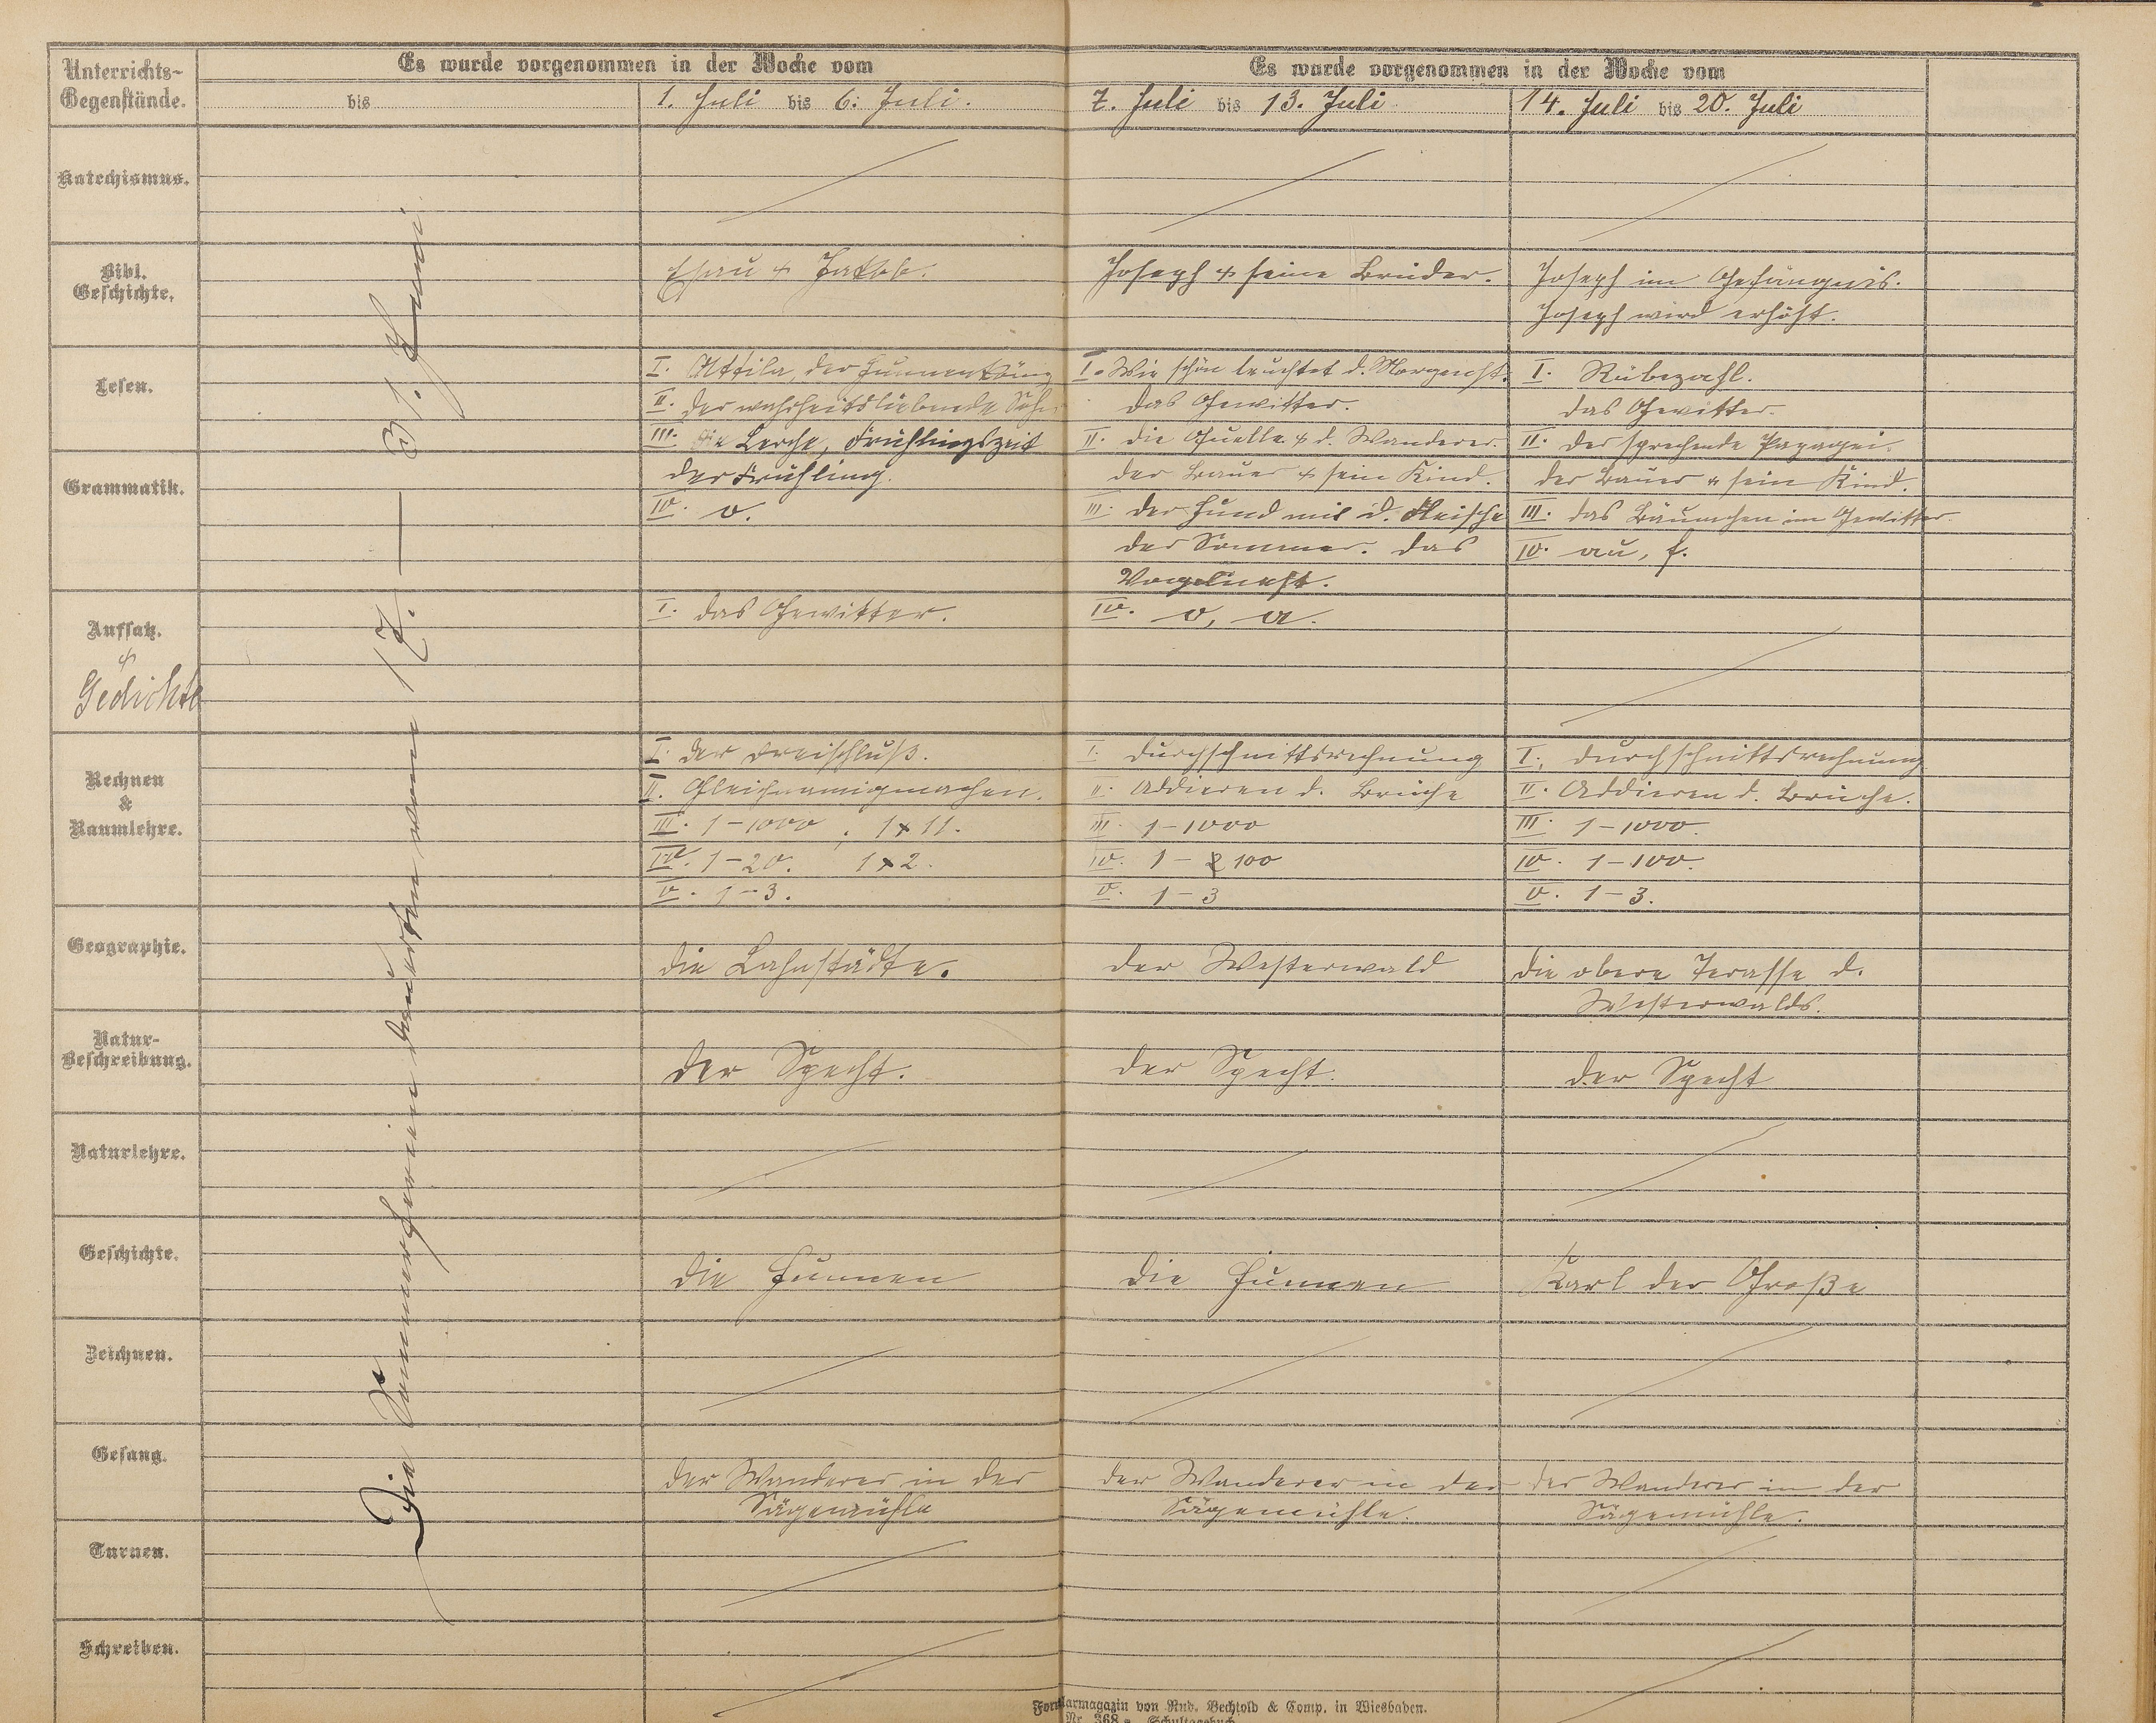 Unterrichts-
Gegenstände.
Es wurde vorgenommen in der Woche vom
Es wurde vorgenommen in der Woche vom
bis
1. Juli bis 6. Juli.
7. Juli bis 13. Juli
14. Juli bis 20. Juli
Die Sommerferien dauerten vom 17. — 31. Juni.
Katechismus.
Bibl.
Geschichte.
Esau & Jakob.
Joseph & seine Brüder.
Joseph im Gefängnis.
Joseph wird erhöht.
Lesen.
Grammatik.
I. Attila, der Hunnenkönig
II. Der wahrheitsliebende Sohn
III. Die Lerche, Frühlingszeit
Der Frühling.
IV. o.
I. Wie schön leuchtet d. Morgenst.
Das Gewitter.
II. Die Quelle & d. Wanderer.
Der Bauer & sein Kind.
III. Der Hund mit d. Fleische
Der Sommer. Das
Vogelnest.
IV. o, a.
I. Rübezahl.
Das Gewitter.
II. Der sprechende Papagei.
Der Bauer & sein Kind.
III. Das Bäumchen im Gewitter.
IV. au, f.
Aufsatz.
&
Gedichte
I. Das Gewitter.
Rechnen
&
Raumlehre.
I. Der Dreischluß.
II. Gleichnamigmachen.
III. 1-1000, 1x11.
IV. 1-20. 1x2.
V. 1-3.
I. Durchschnittsrechnung
II. Addieren d. Brüche
III. 1-1000
IV. 1-100
V. 1-3
I. Durchschnittsrechnung
II. Addieren d. Brüche.
III. 1-1000.
IV. 1-100.
V. 1-3.
Geographie.
Die Lahnstädte.
Der Westerwald
Die obere Terasse d.
Westerwalds.
Natur-
Beschreibung.
Der Specht.
Der Specht.
Der Specht
Naturlehre.
Geschichte.
Die Hunnen
Die Hunnen
Karl der Große
Zeichnen.
Gesang.
Der Wanderer in der
Sägemühle
Der Wanderer in der
Sägemühle.
Der Wanderer in der
Sägemühle.
Turnen.
Schreiben.
Formularmagazin von Rud. Bechtold & Comp. in Wiesbaden.
Nr. 368 Schultagebuch